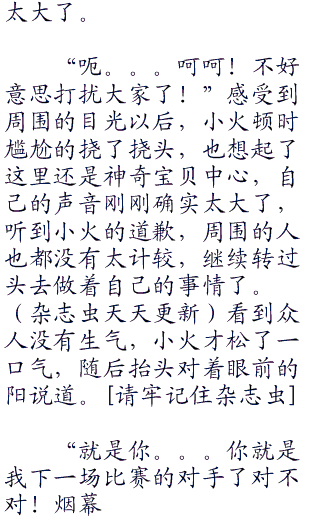 太大了。
“呃。。。呵呵！不好
意思打扰大家了！”感受到
周围的目光以后，小火顿时
尴尬的挠了挠头，也想起了
这里还是神奇宝贝中心，自
己的声音刚刚确实太大了，
听到小火的道歉，周围的人
也都没有太计较，继续转过
头去做着自己的事情了。
（杂志虫天天更新）看到众
人没有生气，小火才松了一
口气，随后抬头对着眼前的
阳说道。[请牢记住杂志虫]
“就是你。。。你就是
我下一场比赛的对手了对不
对！烟幕